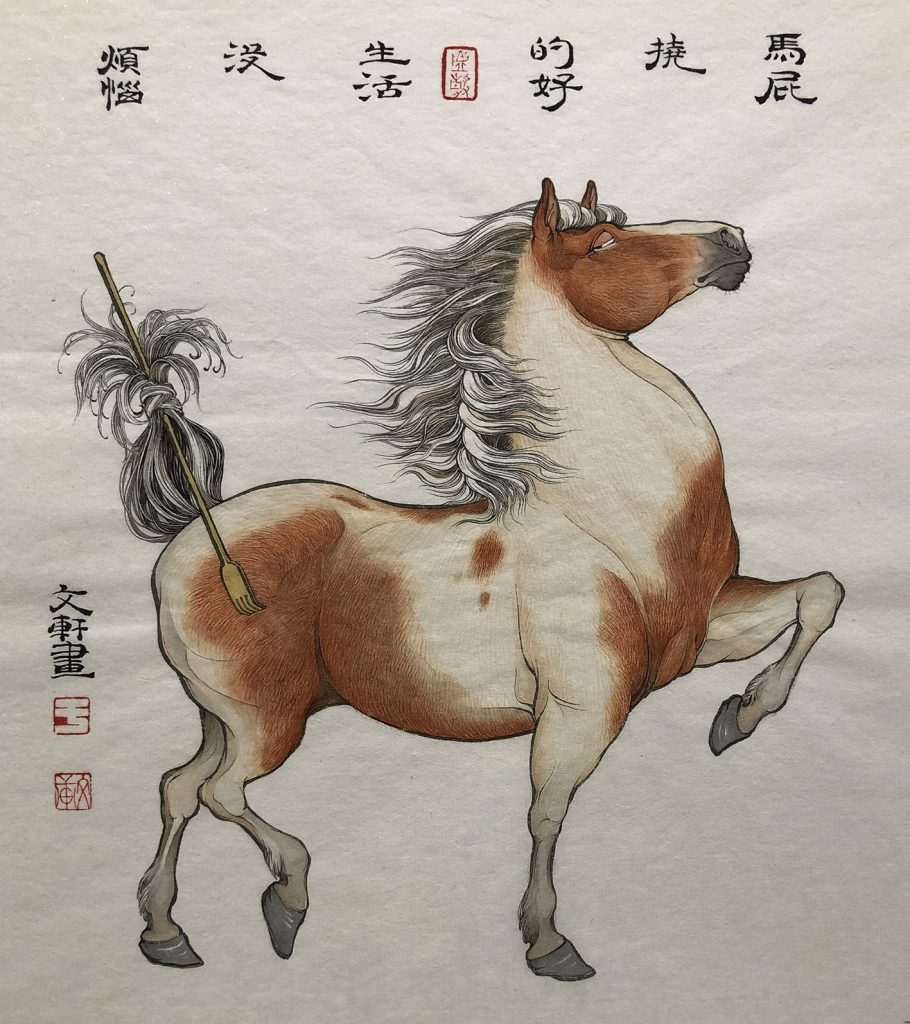 馬屁撓的好生活没煩惱
文軒畫